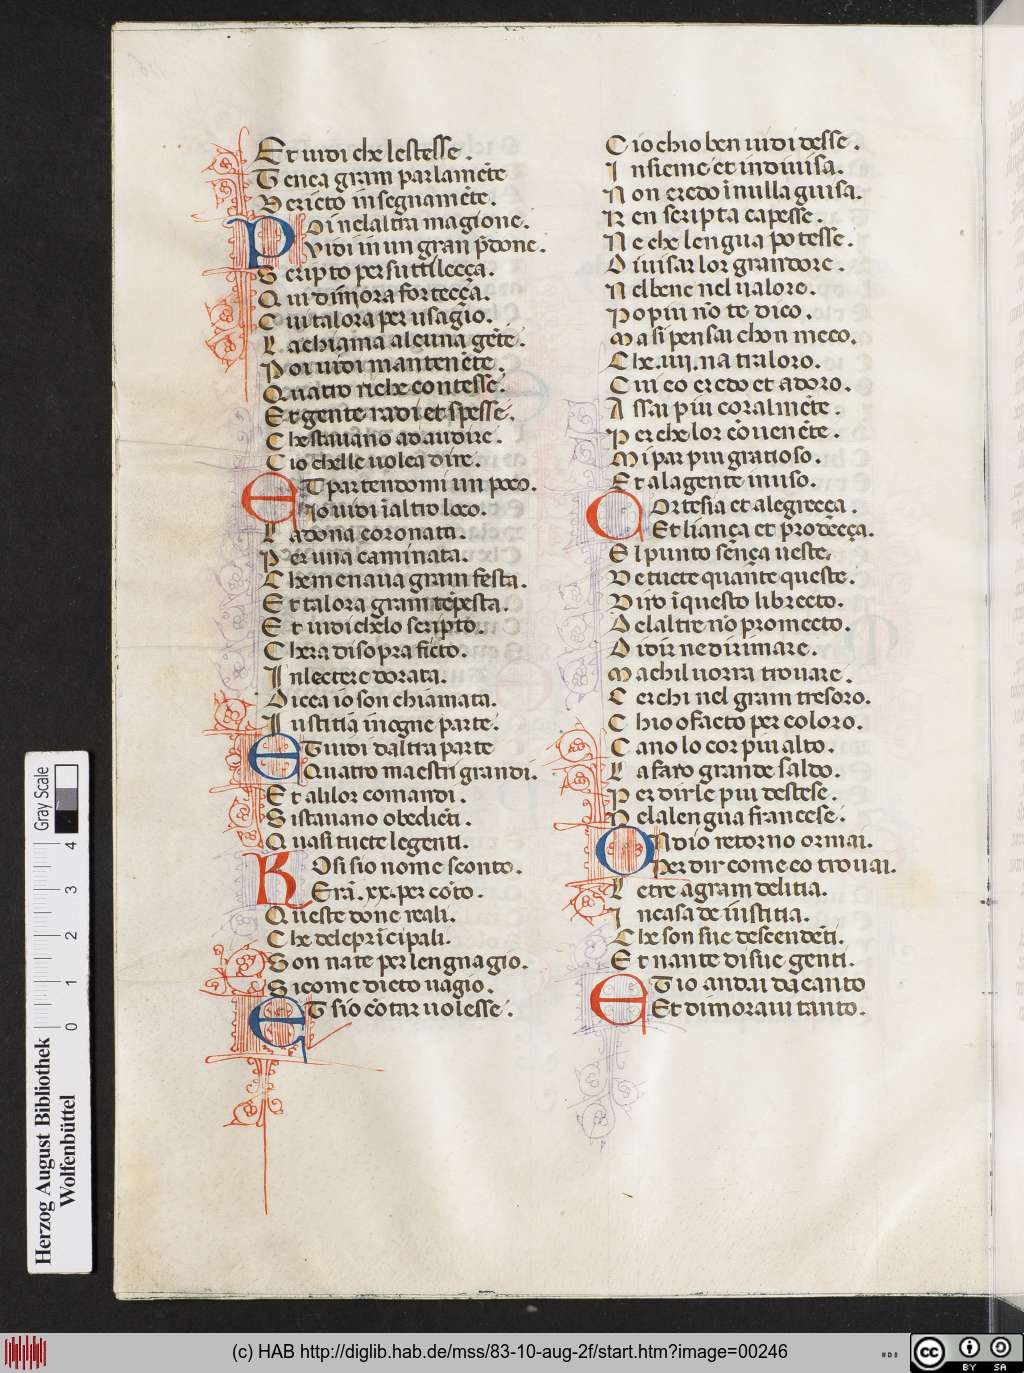 Et uidi che lestesse.
Tenea gram parlam̃ete
De cieto insegnam̃ete.
Poi nelaltra magione.
Vidi in un gran p̃done.
Scripto per suttilecça.
Qui dimora fortecça.
Cui talora per usagio.
La chiama alcuna gẽte.
Poi uidi mantenẽte.
Quatro riche contesse.
Et gente radi et spesse.
Che stauano ad audire.
Cio chelle uolea dire.
Et partendomi un poco.
Io uidi ĩ altro loco.
La dona coronata.
Per una caminata.
Che menaua gram festa.
Et talora gram tẽpesta.
Et uidi chelo scripto.
Chera disopra ficto.
In lectere dorata.
Dicea io son chiamata.
Iustitia in ogne parte.
Et uidi daltra parte
Quatro maestri grandi.
Et ali lor comandi.
Si stauano obediẽti.
Quasi tucte le genti.
Rosi sio nome sconto.
Erã .xx. per cõto.
Queste done reali.
Che dele prĩcipali.
Son nate per lengnagio.
Sicome dicto uagio.
Et sio cõtar uolesse.
Cio chio ben uidi desse.
Insieme et indiuisa.
Non credo ĩ nulla guisa.
Ren scripta capesse.
Ne che lengua potesse.
Diuisar lor grandore.
Nel bene nel ualore.
Po piu nõ te dico.
Ma si pensai chon meco.
Che .iiij. na tra loro.
Cui eo credo et adoro.
Assai piu coralmẽte.
Per che lor cõuenẽte.
Mi par piu gratioso.
Et ala gente in uso.
Cortesia et alegrecça.
Et liança et prodecça.
El punto sença ueste.
De tucte quante queste.
Diro ĩ questo librecto.
Delaltre nõ promecto.
Di dir ne di rimare.
Ma chil uorra trouare.
Cerchi nel gram tresoro.
Chio o facto per coloro.
Cano lo cor piu alto.
La faro grande saldo.
Per dirle piu destese.
Nela lengua francese.
Ondio retorno ormai.
Per dir come eo trouai.
Le tre a gram delitia.
In casa de iustitia.
Che son sue descendẽti.
Et nante di sue genti.
Et io andai da canto
Et dimoraui tanto.
Herzog August Bibliothek
Wolfenbüttel
Gray Scale
0 1 2 3 4
(c) HAB http://diglib.hab.de/mss/83-10-aug-2f/start.htm?image=00246
cc BY SA